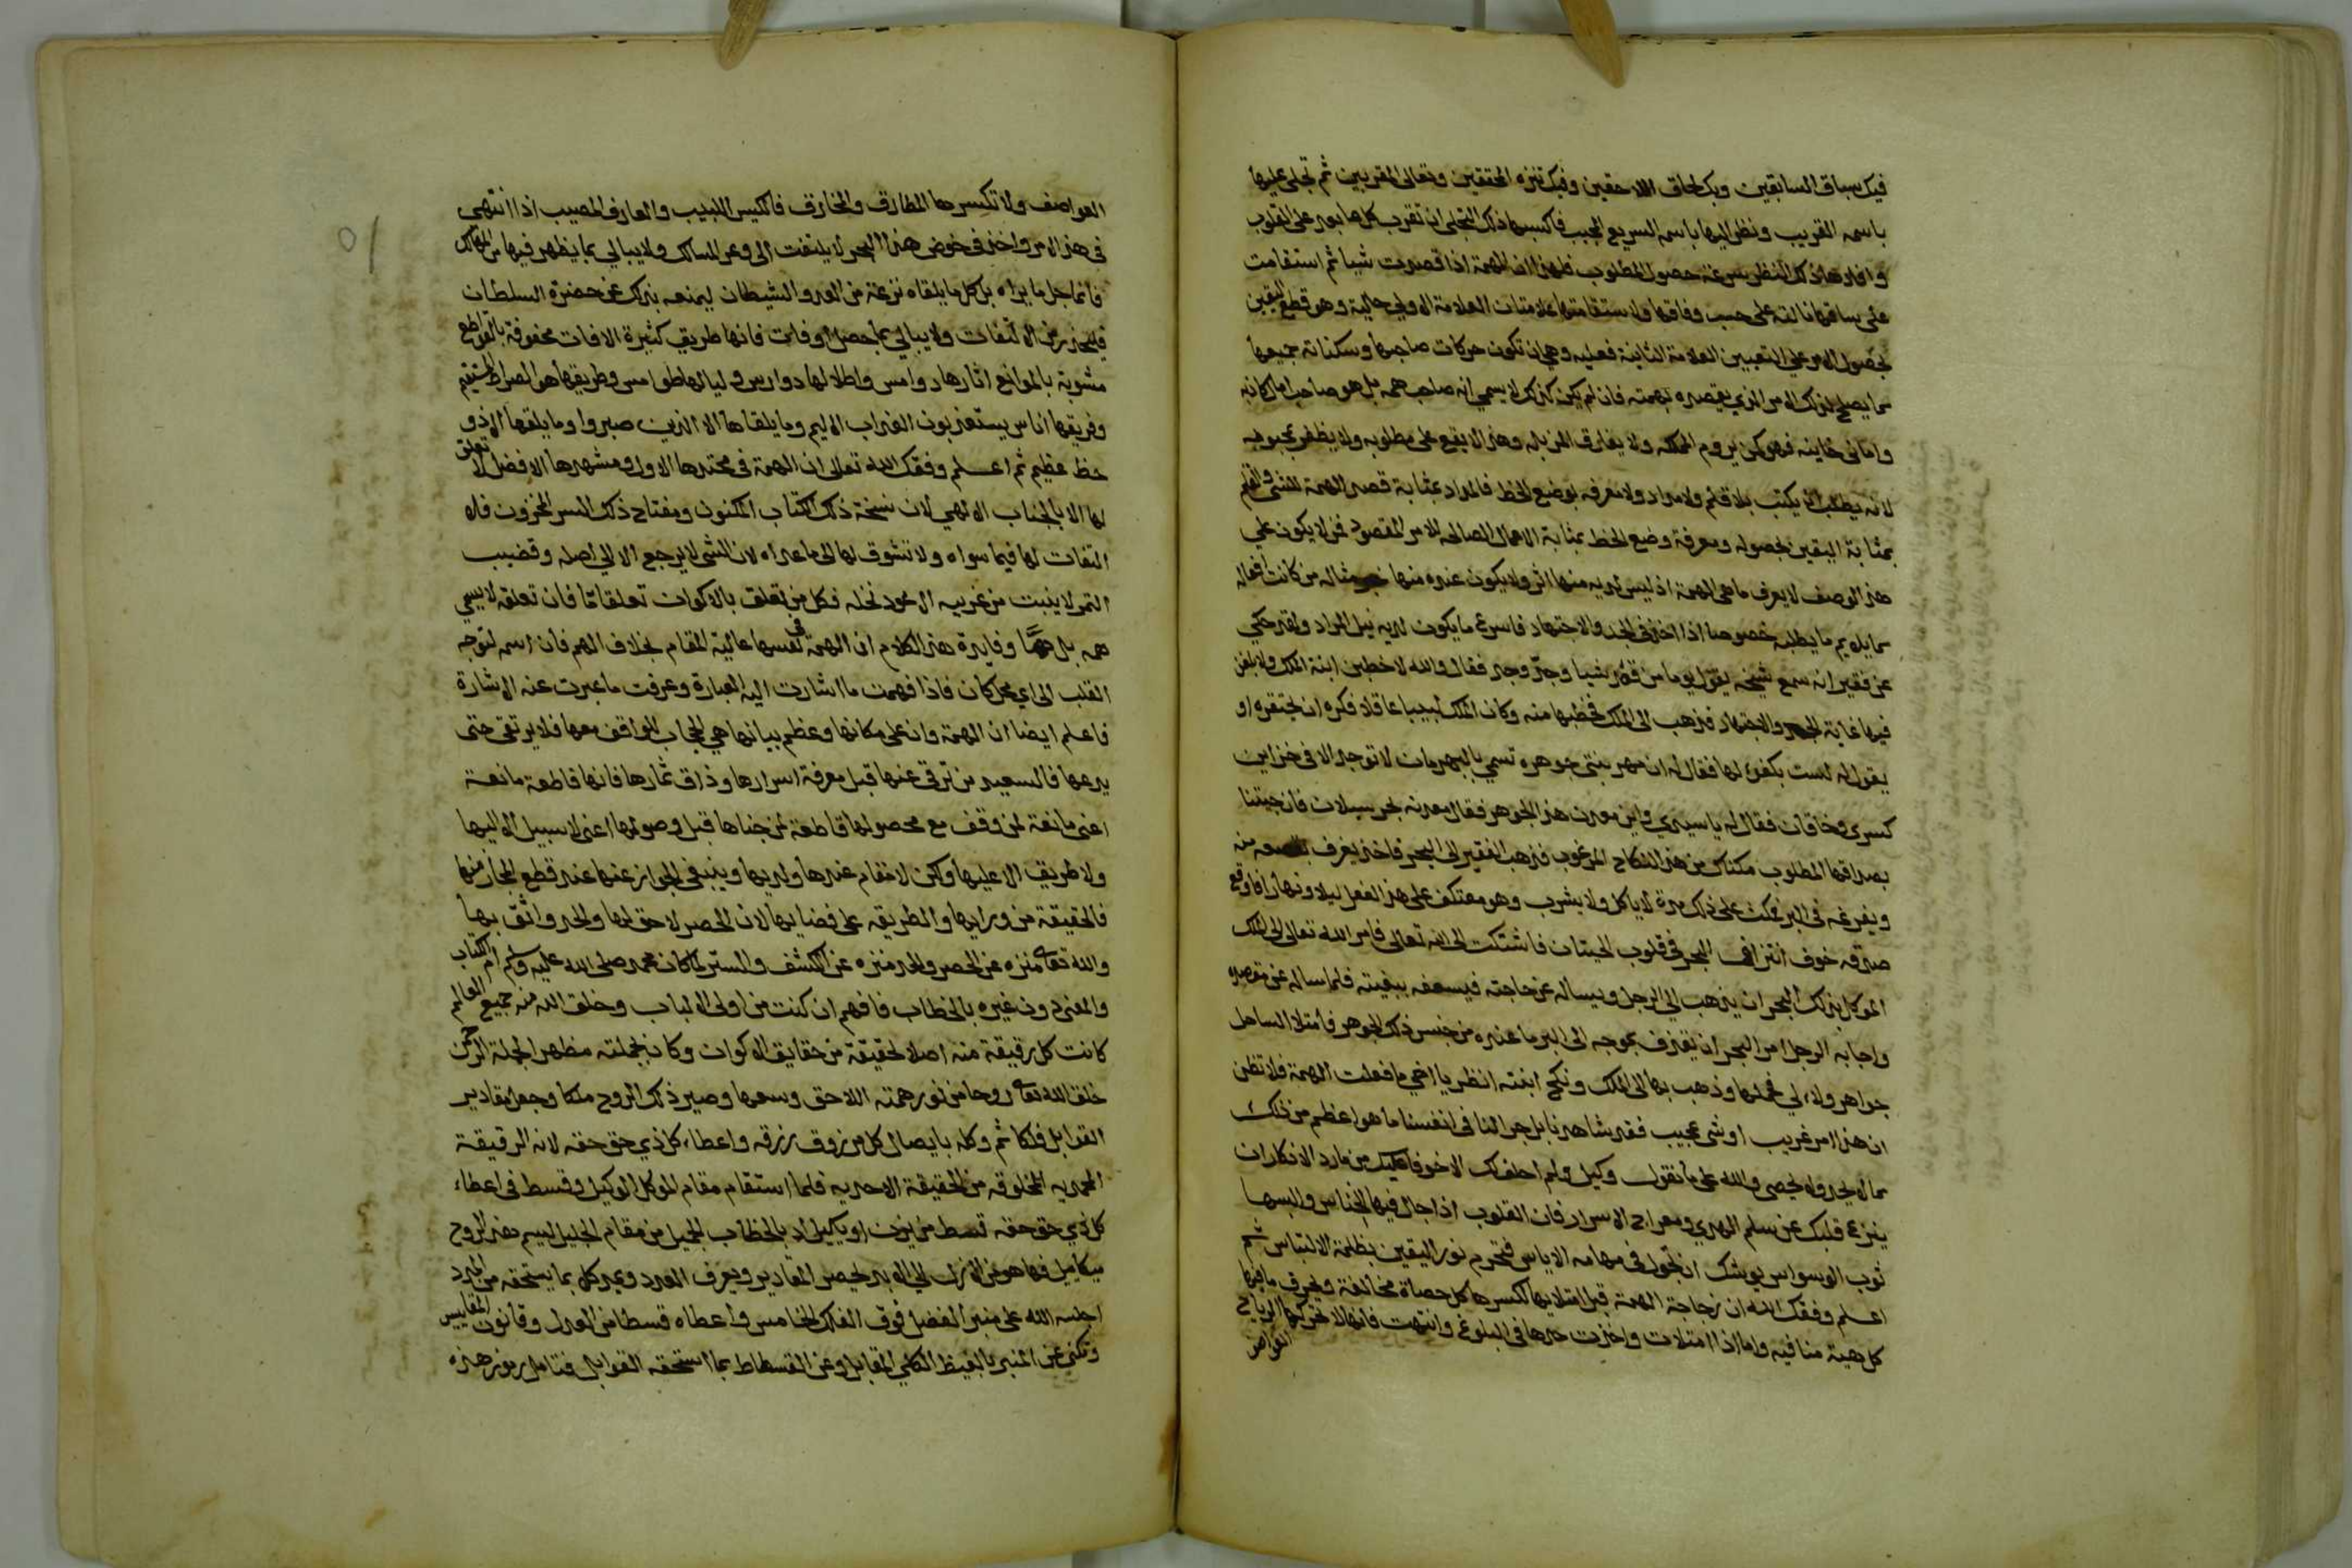 فيك سباق السابقين وبك لحاق اللاحقين وفيك تنزه المحققين وتعالى المقربين ثم تجلى عليها
باسمه القريب ونظر اليها باسمه السريع المجيب فاكسبها ذلك التجلى ان تقرب كل ما بعد على القلوب
وافادها ذلك النظر سرعة حصول المطلوب فلهذا ان الهمة اذا قصدت شيا ثم استقامت
على ساقها نالته على حسب وفاقها ولاستقامتها علامتان العلامة الاولى حالية وهو قطع اليقين
بحصول الامر على التعيين العلامة الثانية فعلية وهى ان تكون حركات صاحبها وسكناته جميعها
مما يصلح لذلك الامر الذي يقصده بهمته فان لم يكن كذلك لا يسمي انه صاحب همه بل هو صاحب امال كاذبه
واماني خاينه فهو كمن يروم المملكه ولا يفارق المزبله وهذا لا يقع على مطلوبه ولا يظفر بمحبوبه
لانه يطلب ان يكتب بلا قلم ولا مداد ولا معرفه بوضع الخط فالمداد بمثابة قصد الهمة للشى والقلم
بمثابة اليقين بحصوله ومعرفة وضع الخط بمثابة الاعمال الصالحه للامر المقصود فمن لا يكون على
هذا الوصف لا يعرف ما هى الهمة اذ ليس لديه منها اثر ولا يكون عنده منها خبر مثاله من كانت افعاله
مما يلايم ما يطلبه خصوصا اذا اخذ في الجد والاجتهاد فاسرع ما يكون لديه نيل المراد ولقد حكي
عن فقير انه سمع شيخه يقول يوما من قصد شيا وجد وجد فقال والله لاخطبن ابنة الملك ولابلغن
فيها غاية الجد والاجتهاد فذهب الى الملك فخطبها منه وكان الملك لبيبا عاقلا فكره ان يحتقره او
يقول له لست بكفو لها فقال له ان مهر بنتي جوهره تسمي بالبهرمان لا توجد الا في خزاين
كسرى وخاقان فقال له يا سيدي واين معدن هذا الجوهر فقال معدنه بحر سيلان فان جيتنا
بصداقها المطلوب مكناك من هذا النكاح المرغوب فذهب الفقير الى البحر فاخذ يغرف بقصعه منه
ويفرغه فى البر فمكث على ذلك مدة لا ياكل ولا يشرب وهو معتكف على هذا الفعل ليلا ونهارا فاوقع
صدقه خوف انتزاف البحر في قلوب الحيتان فاشتكت الى الله تعالى فامر الله تعالى الملك
الموكل بذلك البحر ان يذهب الى الرجل ويساله عن حاجته فيسعفه ببغيته فلما ساله عن مقصده
واجابه الرجل امر البحر ان يقذف بموجه الى البر ما عنده من جنس ذلك الجوهر فامتلا الساحل
جواهر ولالي فحملها وذهب بها الى الملك ونكح ابنته انظر يا اخي ما فعلت الهمة فلا تظن
ان هذا امر غريب او شى عجيب فقد شاهدنا بل جرا لنا فى انفسنا ما هو اعظم من ذلك
مما لا يحد ولا يحصى والله على ما نقول وكيل ولم احلف لك الا خوفا عليك من مارد الانكار ان
ينزع قلبك عن سلم الهدي ومعراج الاسرار فان القلوب اذا جال فيها الخناس والبسها
ثوب الوسواس يوشك ان تجول فى مهامه الاياس فتحرم نور اليقين بظلمة الالتباس ثم
اعلم وفقك الله ان زجاجة الهمة قبل امتلايها تكسرها كل حصاة مخالفة ويهرق ما فيها
كل هية منافيه واما اذا امتلات واخذت حدها فى البلوغ وانتهت فانها لا تحركها الرياح
العواصف
٥١
العواصف ولا تكسرها المطارق والمخارق فالكيس اللبيب والعارف المصيب اذا انتهى
فى هذا الامر واخذ في خوض هذا البحر لا يلتفت الى وعر المسالك ولا يبالي بما يظهر فيها من المهالك
فانما جل ما يراه بل كل ما يلقاه نزغة من العدو الشيطان ليمنعه بذلك عن حضرة السلطان
فليحذر من الالتفات ولا يبالي بما حصل او فات فانها طريق كثيرة الافات محفوفة بالقواطع
مشوبة بالموانع اثارها دوامس واطلالها دوارس ولياليها طوامس وطريقها هو الصراط المستقيم
وفريقها اناس يستعذبون العذاب الاليم وما يلقاها الا الذين صبروا وما يلقها الا ذو
حظ عظيم ثم اعلم وفقك الله تعالى ان الهمة فى محتدها الاول ومشهدها الافضل لا تعلق
لها الا بالجناب الالهي لانها نسخة ذلك الكتاب المكنون ومفتاح ذلك السر المخزون فلا
التفات لها فيما سواه ولا تشوق لها الى ما عداه لان الشى لا يرجع الا الى اصله وقضيب
التمر لا ينبت من غريب الا عود نخله فكل من تعلق بالاكوان تعلقا ما فان تعلقه لا يسمي
همه بل همّا وفايدة هذا الكلام ان الهمة فى نفسها عالية المقام بخلاف الهم فان اسم لتوجه
القلب الى اي محل كان فاذا فهمت ما اشارت اليه العبارة وعرفت ما عبرت عنه الاشارة
فاعلم ايضا ان الهمة وان على مكانها وعظم بيانها هي الحجاب للواقف معها فلا يرتقى حتى
يدعها فالسعيد من ترقى عنها قبل معرفة اسرارها وذاق ثمارها فانها قاطعة مانعة
اعنى مانعة لمن وقف مع محصولها قاطعة لمن جناها قبل وصولها اعنى لا سبيل الا اليها
ولا طريق الا عليها ولكن لا مقام عندها ولديها وينبغي الجواز عنها عند قطع المجاز منها
فالحقيقة من ورايها والطريقه على فضايها لان الحصر لاحق لها والحد واثق بها
والله تعالى منزه عن الحصر والحد منزه عن الكشف والستر لما كان محمد صلى الله عليه وسلم ام الكتاب
والمعنى دون غيره بالخطاب فافهم ان كنت من اولى الالباب وخلق الله منه جميع العالم
كانت كل رقيقة منه اصلا لحقيقة من حقايق الاكوان وكان بجملته مظهر الجملة الرحمن
خلق الله تعالى روحا من نور همته اللاحق وسعها وصير ذلك الروح ملكا وجعل مقادير
القوابل فلكا ثم وكله بايصال كل مرزوق رزقه واعطاء كل ذي حق حقه لانه الرقيقة
المحمدية المخلوقه من الحقيقة الاحمديه فلما استقام مقام الموكل الوكيل وقسط فى اعطاء
كل ذي حق حقه قسط من يزن او يكيل اد بالخطاب الجميل من مقام الجليل ليسم هذا الروح
ميكاييل فها هو من الازل الى الابد يحصر المقادير ويعرف العدد ويمد كل بما يستحقه من المدد
اجلسه الله على منبر الفضل فوق الفلك الخامس واعطاه قسطاس العدل وقانون المقاييس
وتكني عن المنبر بالفيظ الكلي المقابل وعن القسطاط بما استحقه القوابل فتامل رموز هذه